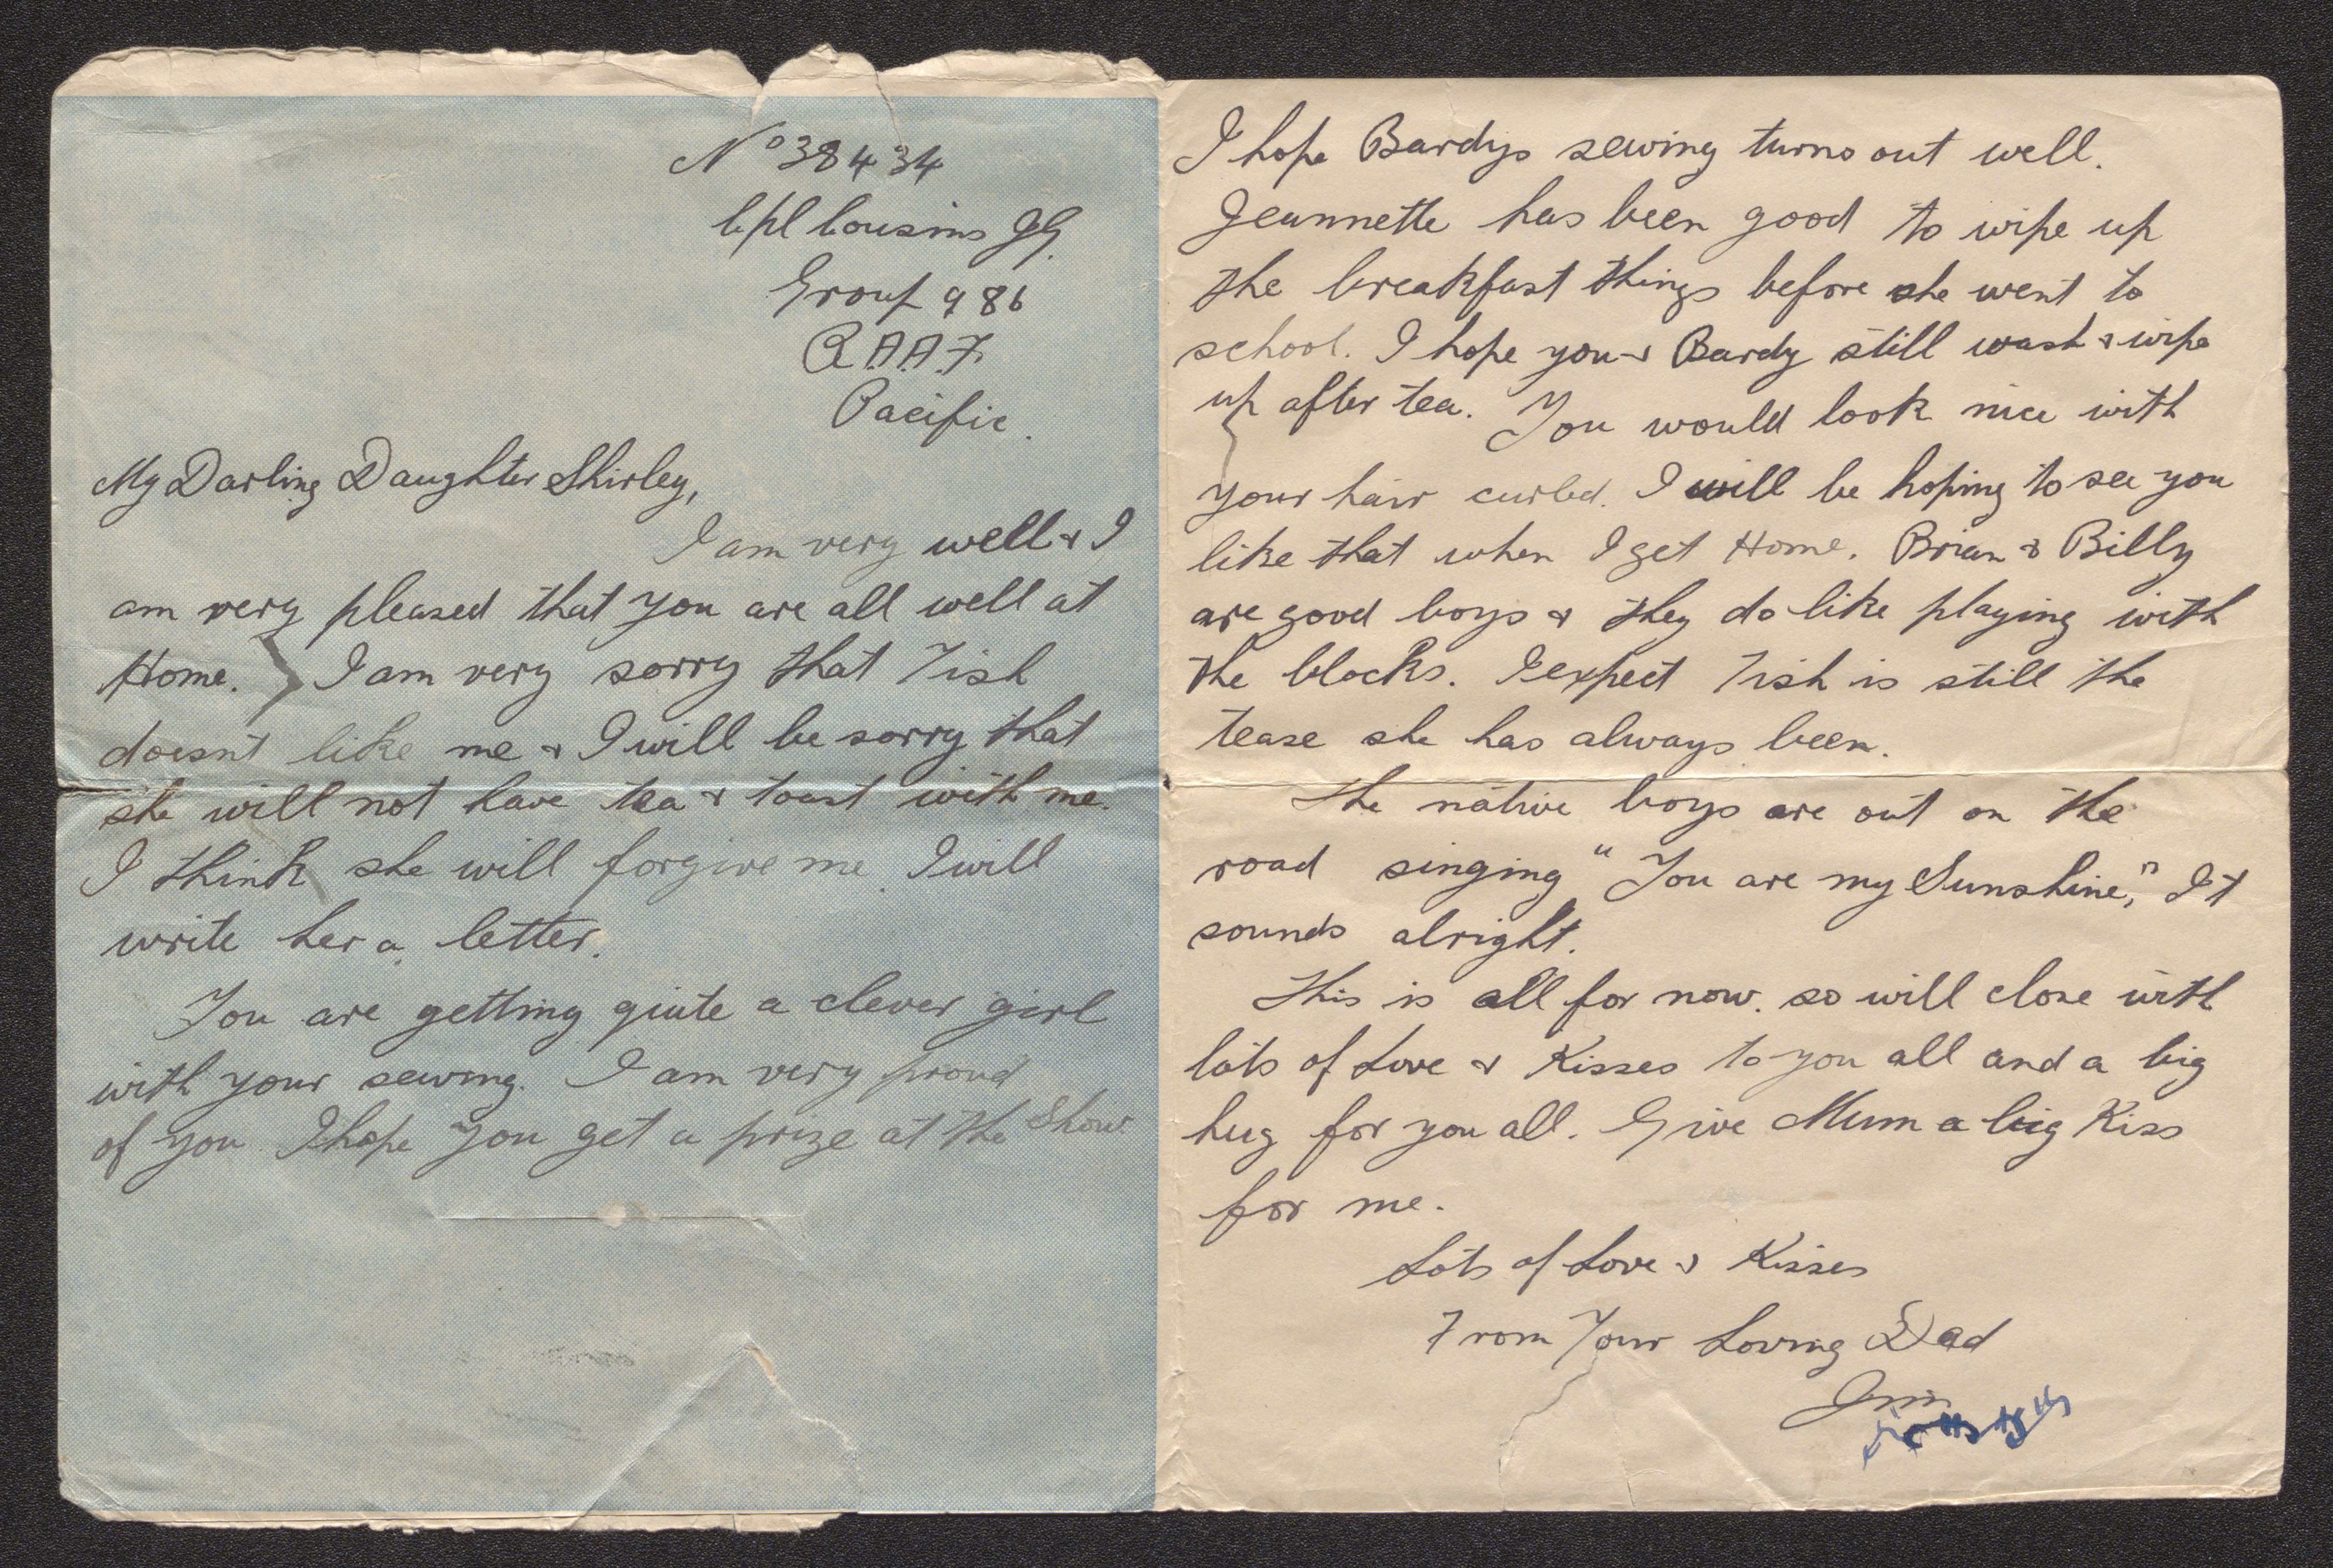 No 38434
Cpl Cousins JG.
Group 986
R.A.A.F.
Pacific.
My Darling Daughter Shirley,
I am very well & I
am very pleased that you are all well at
Home. I am very sorry that Tish
doesn't like me & I will be sorry that
she will not have tea & toast with me.
I think she will forgive me. I will
write her a letter.
You are getting quite a clever girl
with your sewing. I am very proud
of you I hope you get a prize at the Show
I hope Bardys sewing turns out well.
Jeannette has been good to wipe up
the breakfast things before she went to
school. I hope you & Bardy still wash & wipe
up after tea. You would look nice with
your hair curled. I will be hoping to see you
like that when I get Home. Brian & Billy
are good boys & they do like playing with
the blocks. I expect Tish is still the
tease she has always been.
The native boys are out on the
road singing "You are my Sunshine," It
sounds alright.
This is all for now. so will close with
lots of Love & Kisses to you all and a big
hug for you all. Give Mum a big Kiss
for me.
Lots of Love & Kisses
From Your Loving Dad
Jim